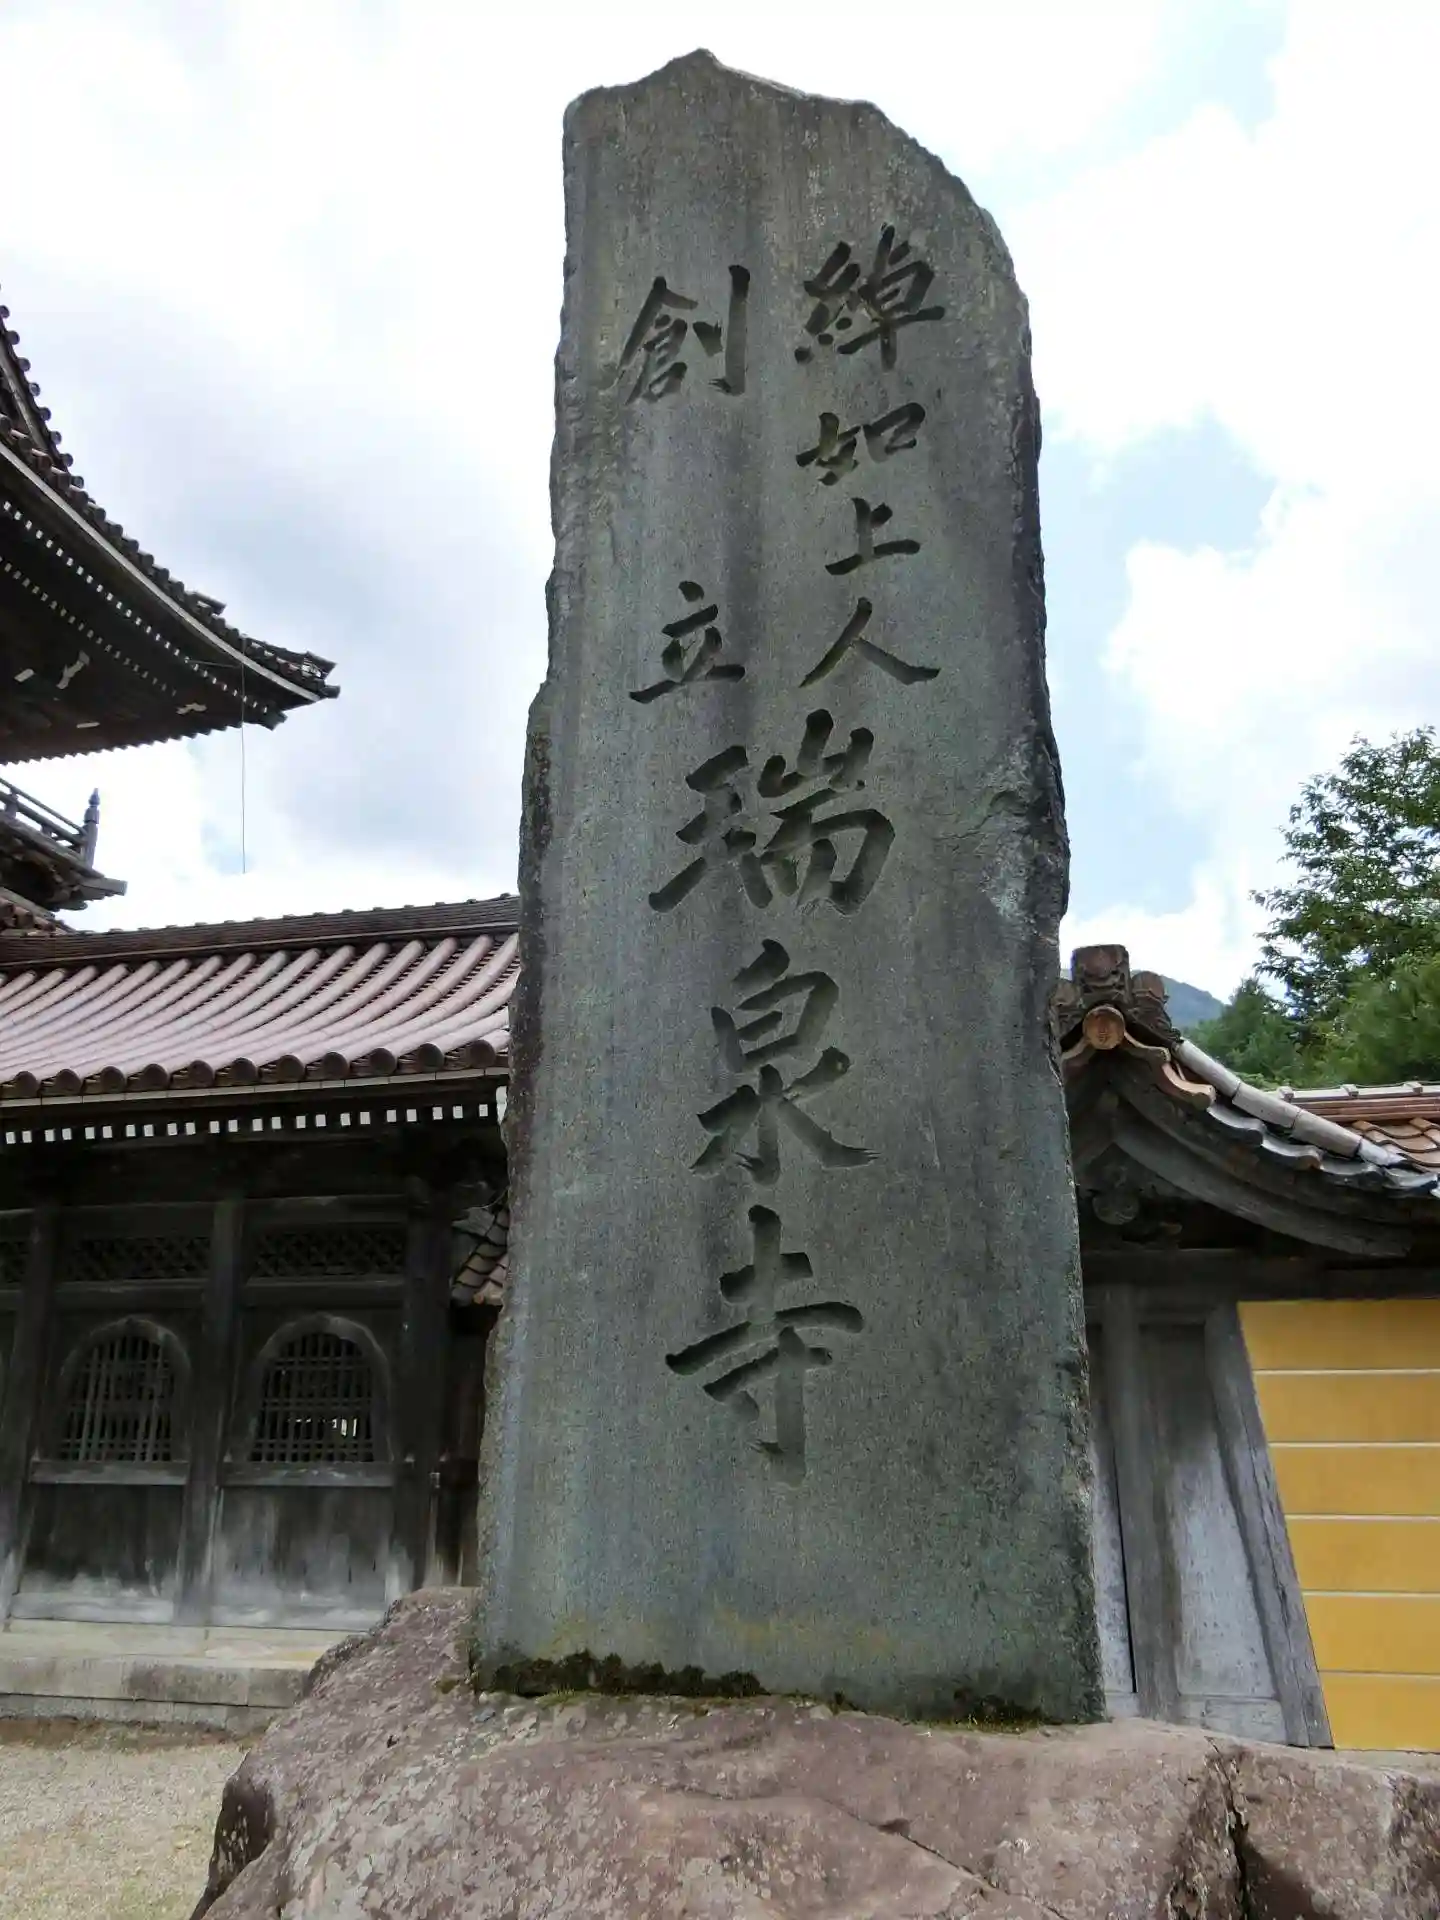 綽如上人
創立
瑞泉寺